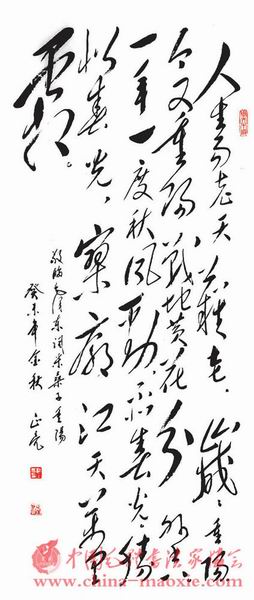 人生易老天难老，岁岁重阳
今又重阳，战地黄花分外香
一年一度秋风劲，不似春光，胜
似春光，寥廓江天万里
霜。
敬临毛泽东词采桑子重阳
癸未年金秋 正亮
中国毛体书法家协会
www.china-maoxie.com